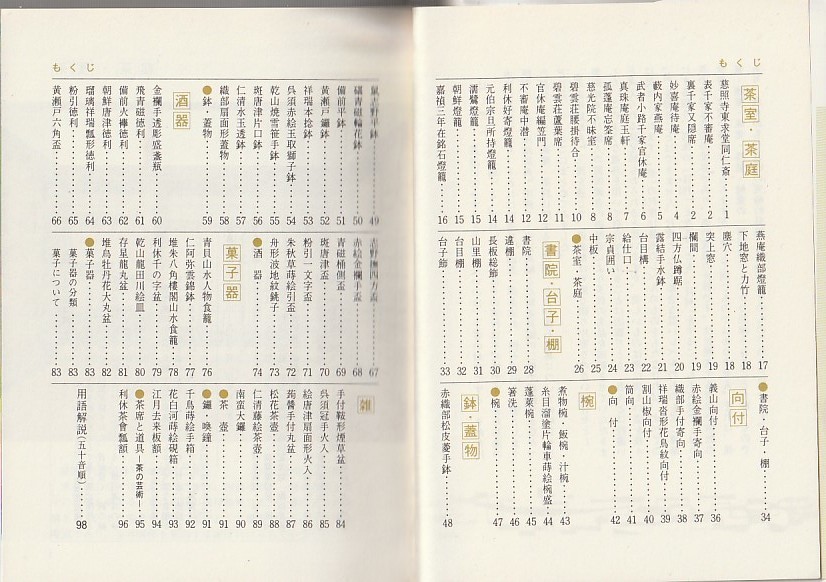 もくじ
茶室・茶庭
慈照寺東求堂同仁斎……1
表千家不審庵……2
裏千家又隠席……3
妙喜庵待庵……4
藪内家燕庵……5
武者小路千家官休庵……6
真珠庵庭玉軒……7
孤篷庵忘筌席……8
慈光院不昧室……8
碧雲荘腰掛待合……10
碧雲荘蘆葉席……11
官休庵編笠門……12
不審庵中潜……12
利休好寄燈籠……14
元伯宗旦所持燈籠……14
濡鷺燈籠……15
朝鮮燈籠……15
嘉禎三年在銘石燈籠……16
燕庵織部燈籠……17
下地窓と力竹……18
塵穴……18
突上窓……19
欄間……19
四方仏蹲踞……20
露結手水鉢……21
台目構……22
給仕口……23
宗貞囲い……24
中板……25
●茶室・茶庭……26
書院・台子・棚
書院……28
違棚……29
長板総飾……30
山里棚……31
台目棚……32
台子飾……33
●書院・台子・棚……34
向付
義山向付……36
赤絵金襴手寄向……37
織部手付寄向……38
祥瑞沓形花鳥紋向付……39
割山椒向付……40
筒向……41
●向付……42
椀
煮物椀・飯椀・汁椀……43
糸目溜塗片輪車蒔絵椀盛……44
蓬莱椀……45
箸洗……46
●椀……47
鉢・蓋物
赤織部松皮菱手鉢……48
もくじ
鼠志野平鉢……49
青磁輪花鉢……50
備前平鉢……51
黄瀬戸鑼鉢……52
祥瑞本捻鉢……53
呉須赤絵玉取獅子鉢……54
乾山焼雪笹手鉢……55
斑唐津片口鉢……56
仁清水玉透鉢……57
織部扇面形蓋物……58
●鉢・蓋物……59
酒器
金襴手透彫盛盞瓶……60
飛青磁徳利……61
備前火襷徳利……62
朝鮮唐津徳利……63
瑠璃祥瑞瓢形徳利……64
粉引徳利……65
黄瀬戸六角盃……66
志野撫四方盃……67
赤絵金襴手盃……68
青磁桶側盃……69
斑唐津盃……70
粉引一文字盃……71
朱秋草蒔絵引盃……72
舟形波地紋銚子……73
●酒器……74
菓子器
青貝山水人物食籠……76
仁阿弥雲錦鉢……77
堆朱八角楼閣山水食籠……78
利休十の字盆……79
乾山龍田川絵皿……80
存星龍丸盆……81
堆烏牡丹花大丸盆……82
●菓子器……83
菓子器の分類……83
菓子について……83
雑
手付鞍形煙草盆……84
呉須冠手火入……85
絵唐津扇面形火入……86
蒟醤手付丸盆……87
松花茶壺……88
仁清藤絵茶壺……89
南蛮大鑼……90
●茶壺……91
●鑼・喚鐘……91
千鳥蒔絵手箱……92
花白河蒔絵硯箱……93
江月去来板額……94
●茶席と道具―茶の芸術―……95
利休茶会瓢額……96
用語解説(五十音順)……98